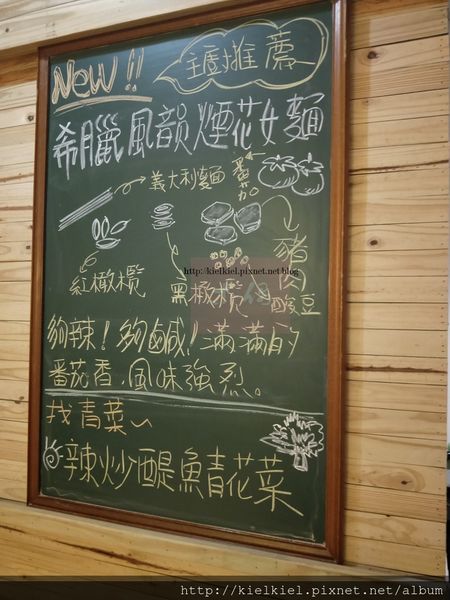 New!!
主廚推薦
希臘風韻煙花女麵
義大利麵
番茄
紅橄欖
黑橄欖
豬肉
酸豆
http://kielkiel.pixnet.net/blog
夠辣!夠鹹!滿滿的
番茄香,風味強烈。
找青菜~
辣炒鯷魚青花菜
http://kielkiel.pixnet.net/album